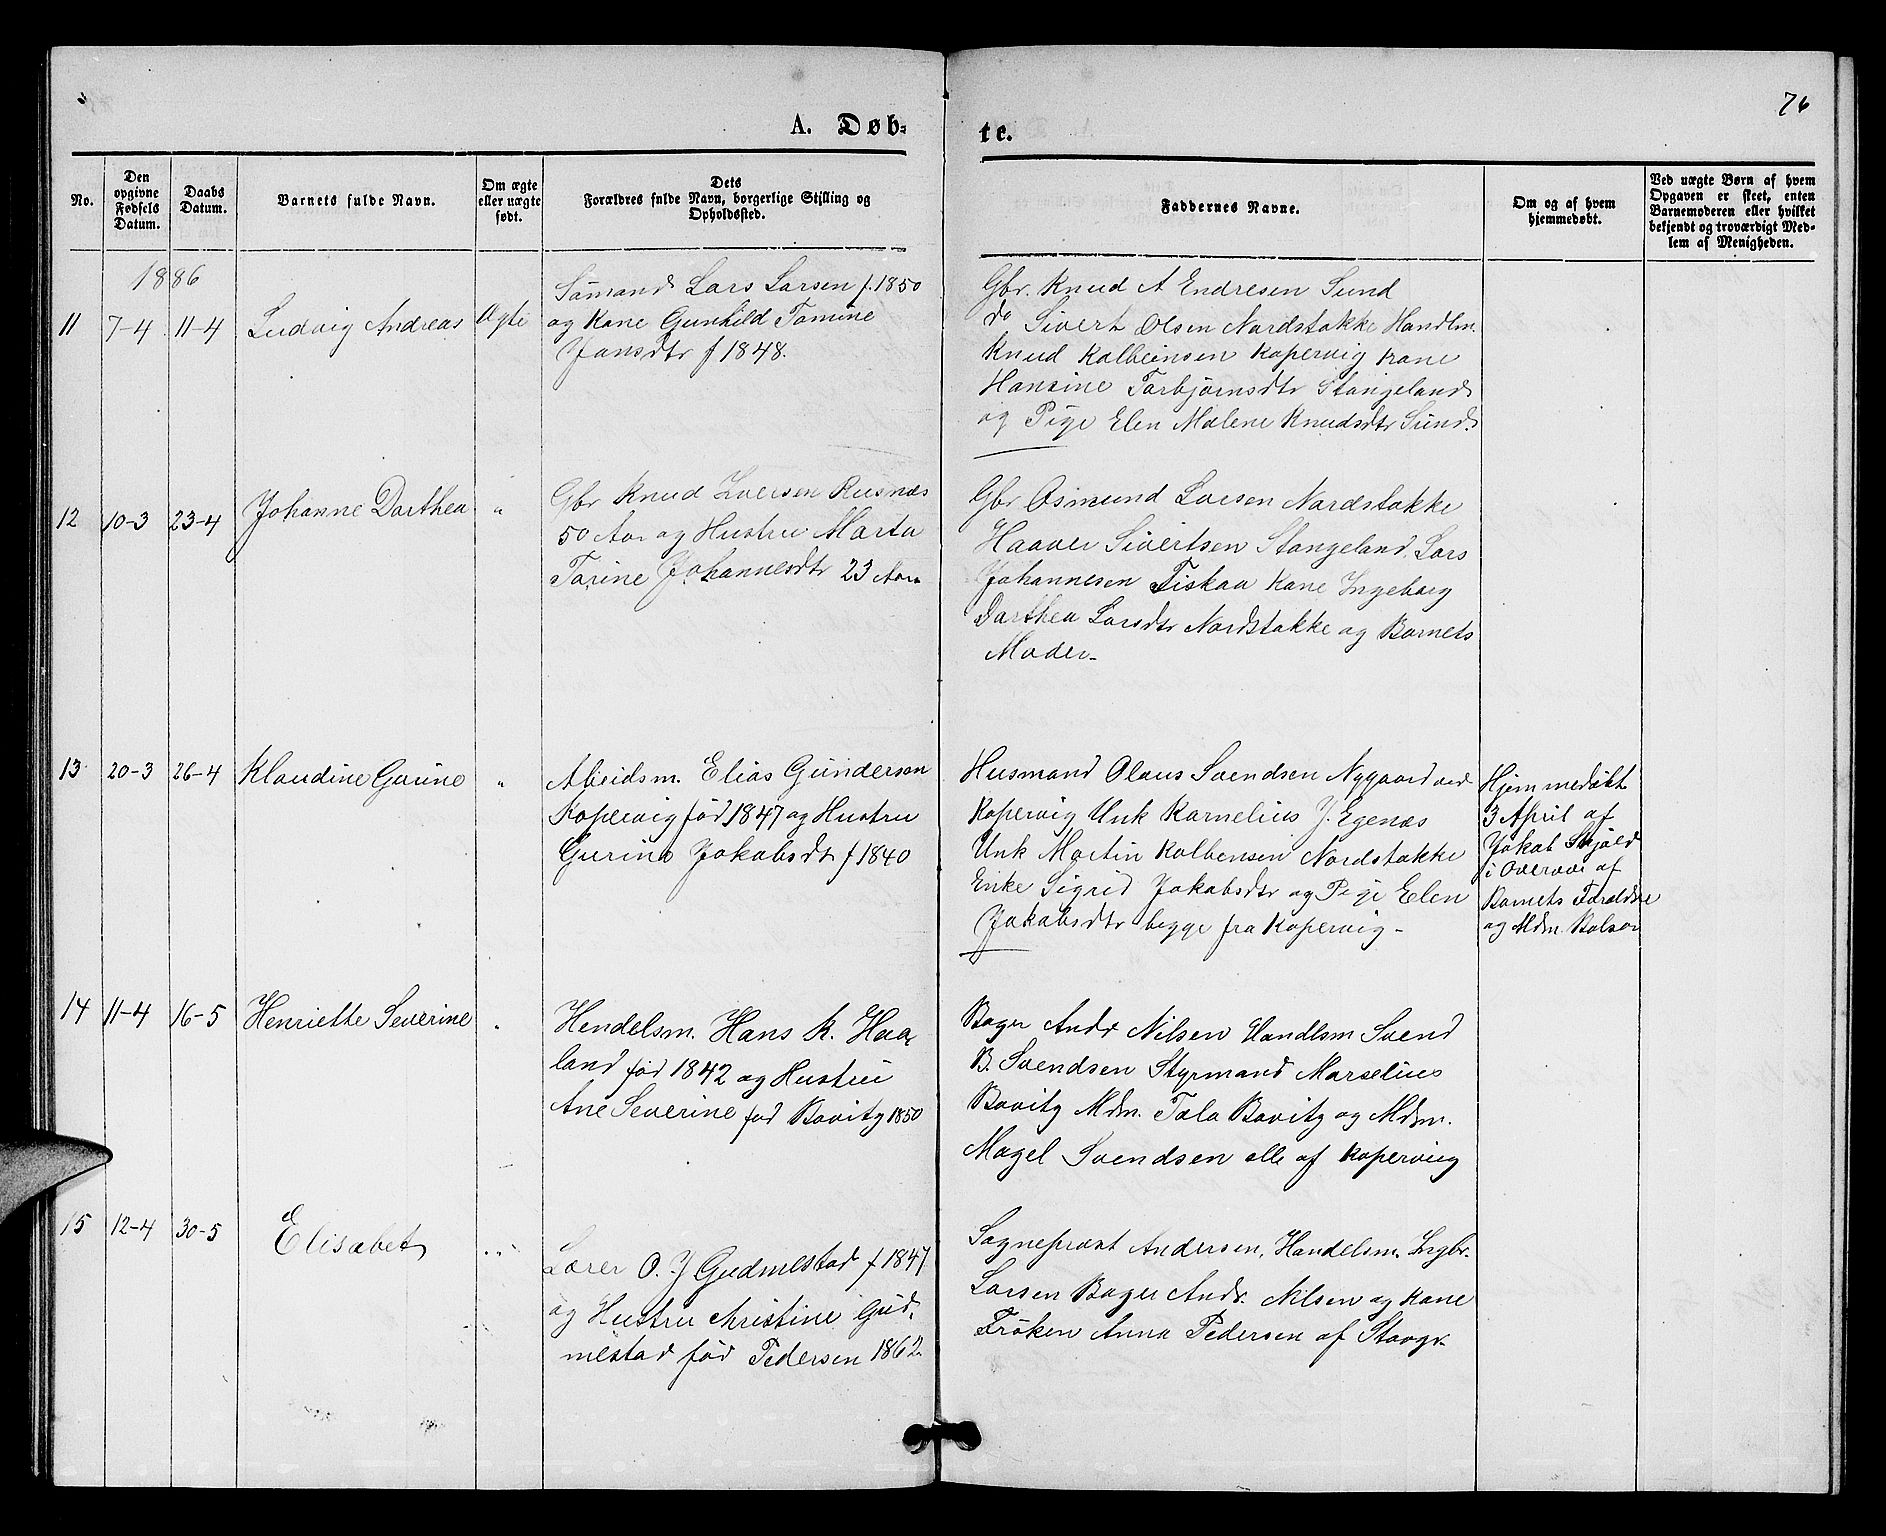 76
A. Døb-
te.
No.
Den
opgivne
Fødsels
Datum.
Daabs
Datum.
Barnets fulde Navn.
Om ægte
eller uægte
født.
Dets
Forældres fulde Navn, borgerlige Stilling og
Opholdssted.
Faddernes Navne.
Om og af hvem
hjemmedøbt.
Ved uægte Børn af hvem
Opgaven er skeet, enten
Barnemoderen eller hvilket
bekjendt og troværdigt Med-
lem af Menigheden.
1886
11
7-4
11-4
Ludvig Andreas
Ægte
Sømand Lars Larsen f. 1850
og Kone Gunhild Tomine
Jansdtr f 1848.
Gbr. Knud A Endresen Sund
do Sivert Olsen Nordstokke Handlm.
Knud Kolbeinsen Kopervig Kone
Hansine Torbjørnsdtr Stangeland
og Pige Elen Malene Knudsdtr Sund.
12
10-3
23-4
Johanne Dorthea
"
Gbr Knud Iversen Risnæs
50 Aar og Hustru Marta
Torine Johannesdtr 23 Aar
Gbr Osmund Larsen Nordstokke
Haaver Sivertsen Stangeland Lars
Johannesen Fiskaa Kone Ingeborg
Dorthea Larsdtr Nordstokke og Barnets
Moder-
13
20-3
26-4
Klaudine Gurine
"
Abeidsm. Elias Gunderson
Kopervig fød 1847 og Hustru
Gurine Jakobsdt f 1840
Husmand Olaus Svendsen Nygaard ved
Kopervig Unk Karnelius J. Egenæs
Unk Martin Kolbensen Nordstokke
Enke Sigrid Jakobsdtr og Pige Elen
Jakobsdtr begge fra Kopervig-
Hjemmedøbt
3 April af
Jakob Skjold
i Overvær af
Barnets Forældre
og Mdm.
14
11-4
16-5
Henriette Severine
"
Hendelsm. Hans K. Haa-
land fød 1842 og Hustru
Ane Severine fød Bovitz 1850
Bager Andr Nilsen Handlsm Svend
B. Svendsen Styrmand Marselius
Bovitz Mdm. Tala Bovitz og Mdm.
Magel Svendsen alle af Kopervig
15
12-4
30-5
Elisabet
"
Lærer O. J Gudmestad f 1847
og Hustru Kristine Gud-
mestad fød Pedersen 1862.
Sognepræst Andersen, Handelsm. Ingbr.
Larsen Bager Andr. Nilsen og Kone
Frøken Anna Pedersen af Stavgr.